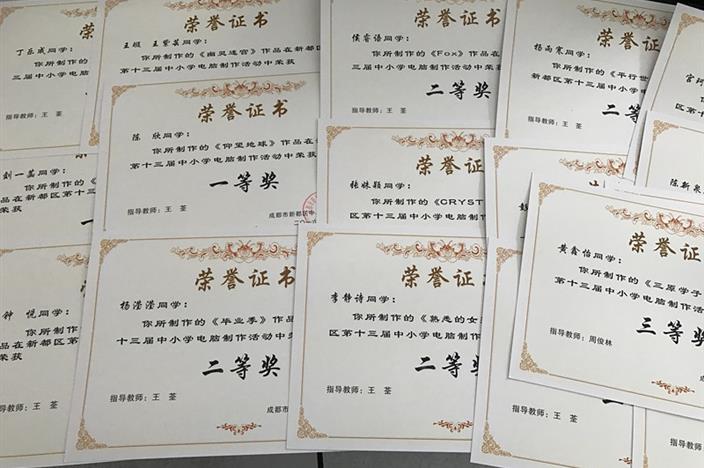 荣
丁乐成同学：
你所制作的
三届中小学电
指导教师：王 荃
荣誉证书
王娅 王紫茗同学：
你所制作的《幽灵迷宫》作品在新都
第十三届中小学电脑制作活动中荣获
荣誉证书
侯睿语同学：
你所制作的《Fox》作品在
三届中小学电脑制作活动中荣获
二等奖
指导教师：王 荃
荣誉证书
杨雨寒同学：
你所制作的《平行世
新都区第十三届中小学电脑
二等
指导教师：王 荃
荣誉证书
陈 欣同学：
你所制作的《仰望地球》作品在
第十三届中小学电脑制作活动中荣获
一等奖
指导教师：王 荃
成都市新都区
荣誉证
张姝颖同学：
你所制作的《CRYST
区第十三届中小学电脑制
陈新泉
刘一
你所制
品在新都区
荣获
荣誉
黄鑫怡同学：
你所制作的《三原学子
第十三届中小学电脑制作活
三等奖
指导教师：周俊林
钟 悦同学：
你所制作
品在新都区第
荣获
指导教师：王 荃
荣誉证书
杨滢滢同学：
你所制作的《毕业季》作品在
十三届中小学电脑制作活动中荣
二等奖
指导教师：王 荃
成都市
荣誉证
李静诗同学：
你所制作的《熟悉的女
区第十三届中小学电脑制作
二等奖
指导教师：王 荃
指导教师：王 荃